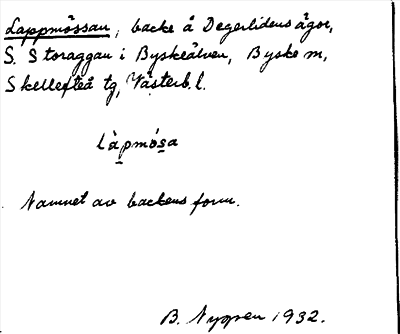 Lappmössan, backe å Degerlidens ägor,
S. Storaggan i Byskeälven, Byske m,
Skellefteå tg, Västerb. l.
Làpmó̀sa
Namnet av backens form.
B. Nygren 1932.